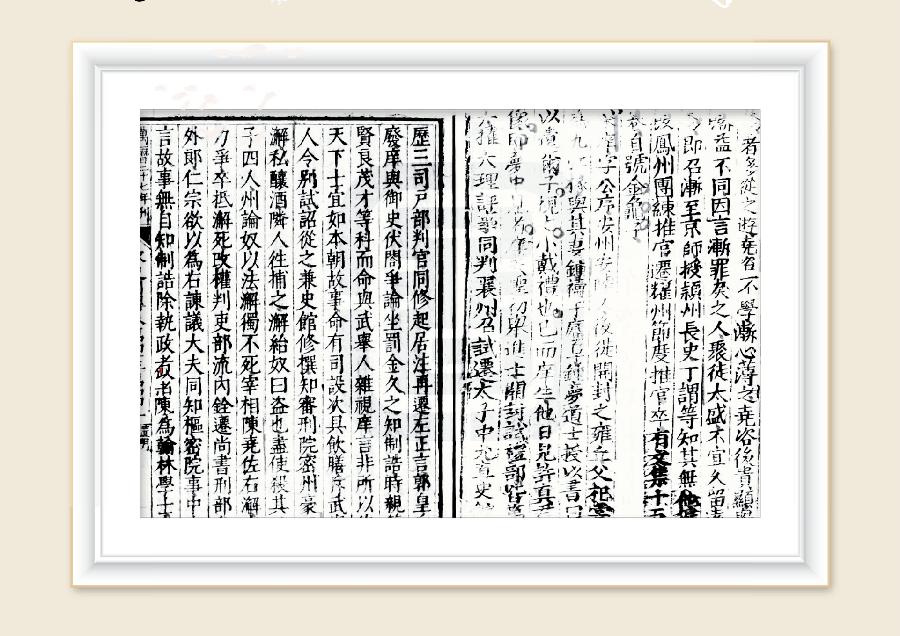 者多從之遊堯咨不學漸心薄之堯咨後貴顯
盜不同因言漸罪戾之人聚徒太盛不宜久留
即召漸至京師授潁州長史丁謂等知其無他
鳳州團練推官遷耀州節度推官卒有文集十五
自號金龜
字公序安州安陸人後徙開封之雍丘父祀
九江與其妻鍾禱于廬阜鍾夢道士授以書曰
以遺爾子視之小戴禮也已而庠生他日見許真
像即夢中見者庠天聖初舉進士開封試禮部皆
擢大理評事同判襄州召試遷太子中允直史
歷三司戶部判官同修起居注再遷左正言郭皇
廢庠與御史伏閤爭論坐罰金久之知制誥時親
賢良茂才等科而命與武舉人雜視庠言非所以
天下士宜如本朝故事命有司設次具飲膳斥武
人令別試詔從之兼史館修撰知審刑院密州豪
澥私釀酒隣人往捕之澥紿奴曰盜也盡使殺其
子四人州論奴以法澥獨不死宰相陳堯佐右澥
力爭卒抵澥死改權判吏部流內銓遷尚書刑部
外郎仁宗欲以為右諫議大夫同知樞密院事中
言故事無自知制誥除執政者乃詔為翰林學士